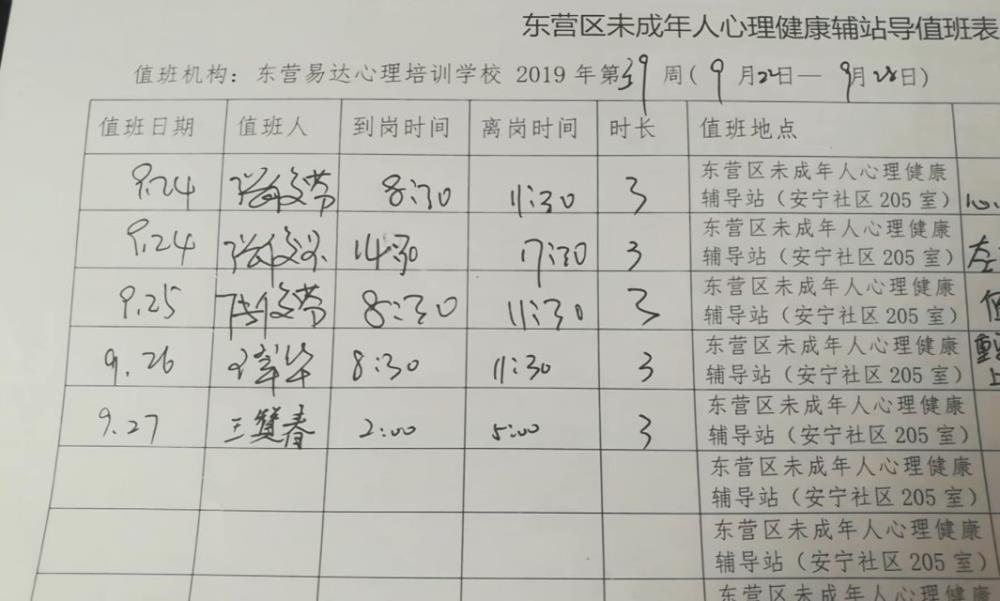 东营区未成年人心理健康辅站导值班表
值班机构：东营易达心理培训学校 2019 年第39周(9月22日—9月28日)
值班日期 值班人 到岗时间 离岗时间 时长 值班地点
9.24 8:30 11:30 3 东营区未成年人心理健康
辅导站（安宁社区 205 室）
9.24 14:30 17:30 3 东营区未成年人心理健康
辅导站（安宁社区 205 室）
9.25 8:30 11:30 3 东营区未成年人心理健康
辅导站（安宁社区 205 室）
9.26 8:30 11:30 3 东营区未成年人心理健康
辅导站（安宁社区 205 室）
9.27 2:00 5:00 3 东营区未成年人心理健康
辅导站（安宁社区 205 室）
东营区未成年人心理健康
辅导站（安宁社区 205 室）
东营区未成年人心理健康
辅导站（安宁社区 205 室）
东营区未成年人心理健康